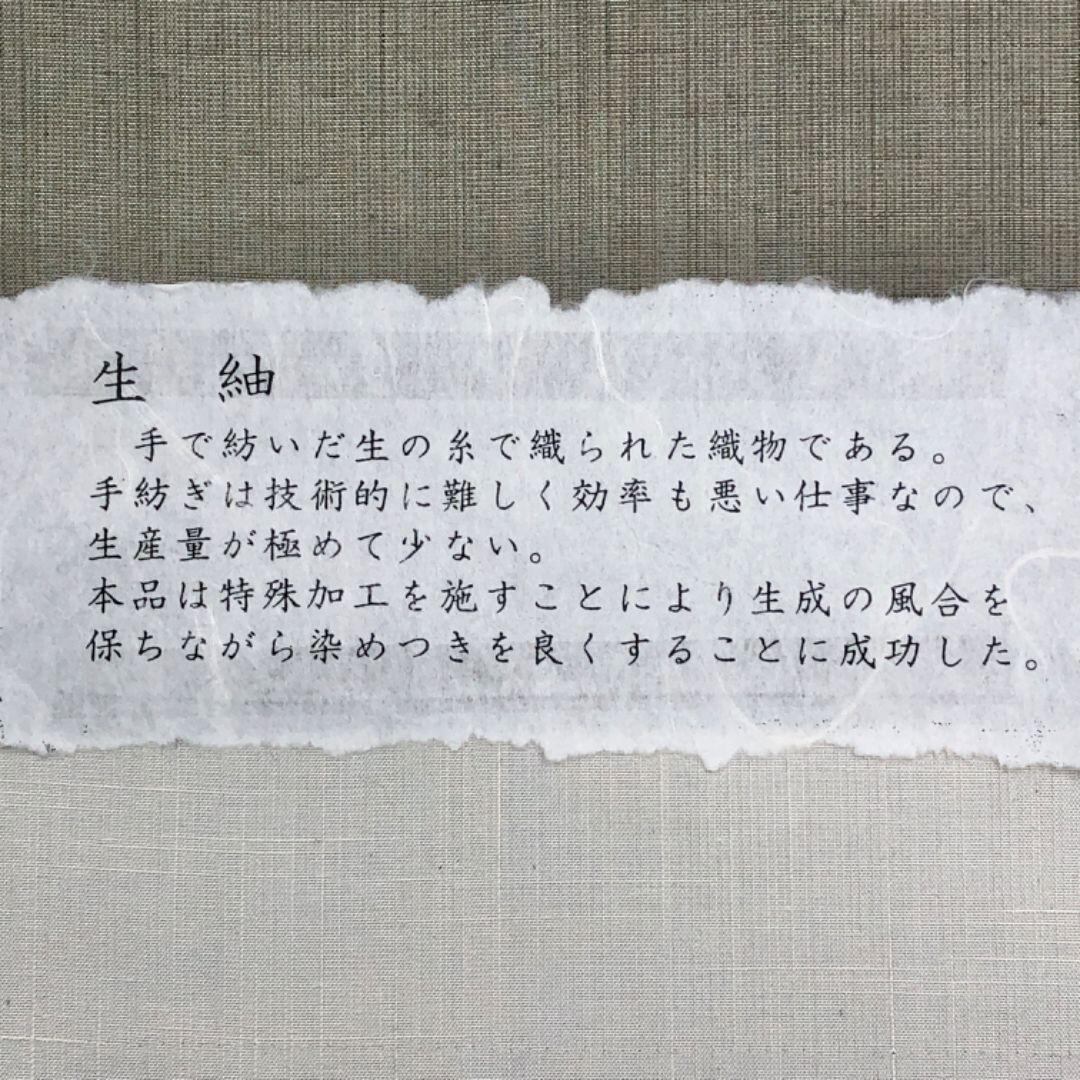 生 紬
手で紡いだ生の糸で織られた織物である。
手紡ぎは技術的に難しく効率も悪い仕事なので、
生産量が極めて少ない。
本品は特殊加工を施すことにより生成の風合を
保ちながら染めつきを良くすることに成功した。